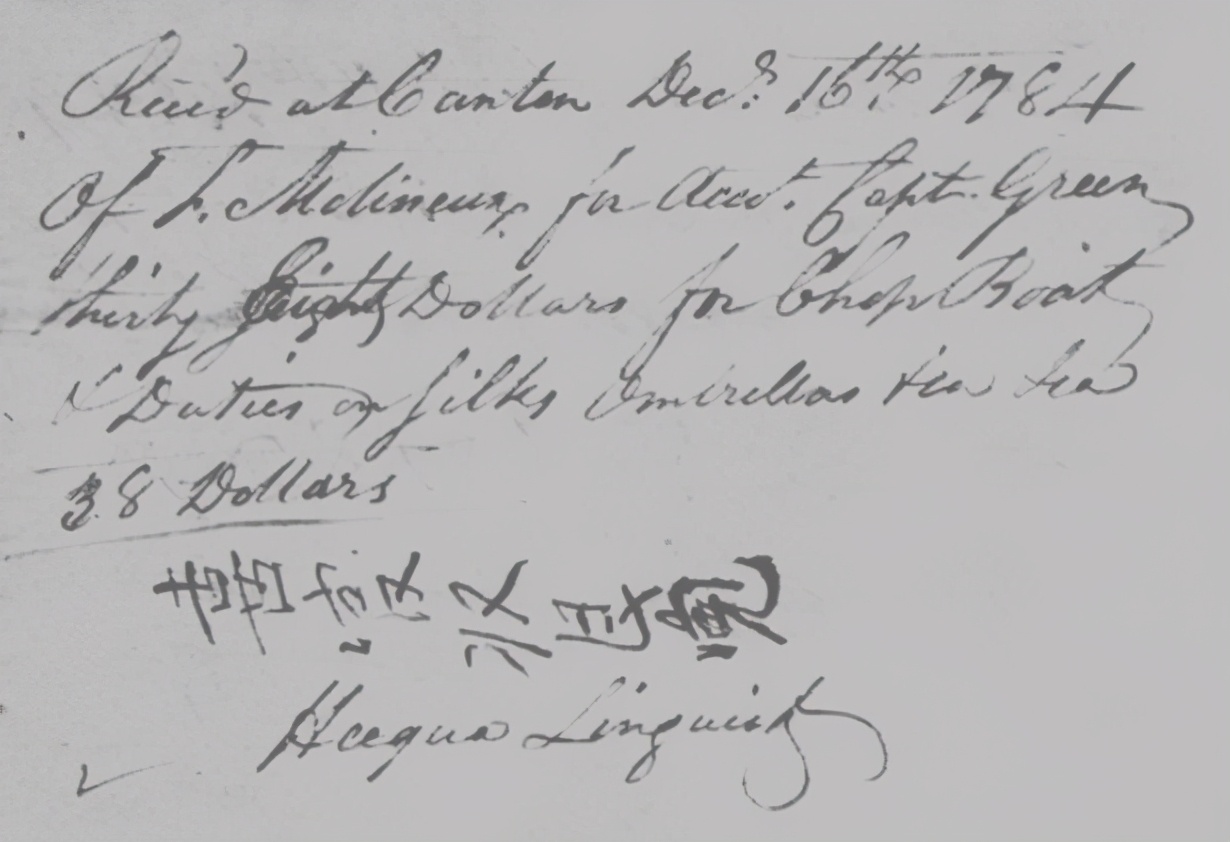 Rec'd at Canton Decr. 16th 1784
Of F. Molineux for Acct. Capt. Green
thirty Eight Dollars for Chop Boat
& Duties on Silks Umbrellas tea tea
38 Dollars
Linguist